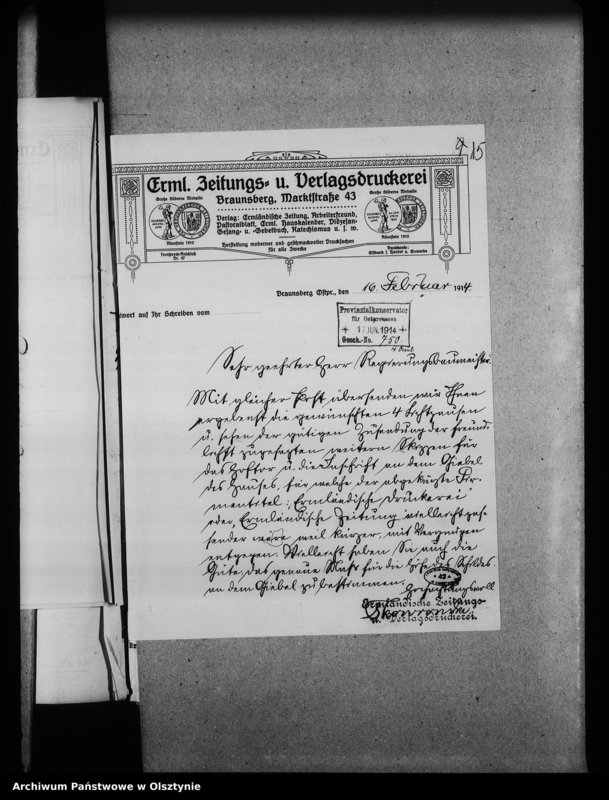 15
Erml. Zeitungs- u. Verlagsdruckerei
Braunsberg, Marktstraße 43
Große Silberne Medaille
Allenstein 1910
Verlag: Ermländische Zeitung, Arbeiterfreund,
Pastoralblatt, Erml. Hauskalender, Diözesan-
Gesang- u. -Gebetbuch, Katechismus u. s. w.
Große Silberne Medaille
Allenstein 1910
Herstellung moderner und geschmackvoller Drucksachen
für alle Zwecke
Fernsprech-Anschluß
Nr. 47
Bankkonto:
Ostbank f. Handel u. Gewerbe
Braunsberg Ostpr., den 16. Februar 1914
twort auf Ihr Schreiben vom
Provinzialkonservator
für Ostpreussen
17. JUN. 1914
Gesch.-No. 750
Sehr geehrter Herr Regierungsbaumeister.
Mit gleicher Post übersenden wir Ihnen
ergebenst die gewünschten 4 Lichtpausen
u. sehen der gütigen Zusendung der freund-
lichst zugesagten weitern Skizzen für
das Hoftor u. die Inschrift an dem Giebel
des Hauses, für welche der abgekürzte Fir-
mentitel: Ermländische Druckerei
oder, Ermländische Zeitung vielleicht pas-
sender wäre weil kürzer, mit Vergnügen
entgegen. Vielleicht haben Sie auch die
Güte, das genaue Maß für die Höhe des Schildes
an dem Giebel zu bestimmen.
Hochachtungsvoll
Ermländische Zeitungs-
u. Verlagsdruckerei.
Br
Archiwum Państwowe w Olsztynie